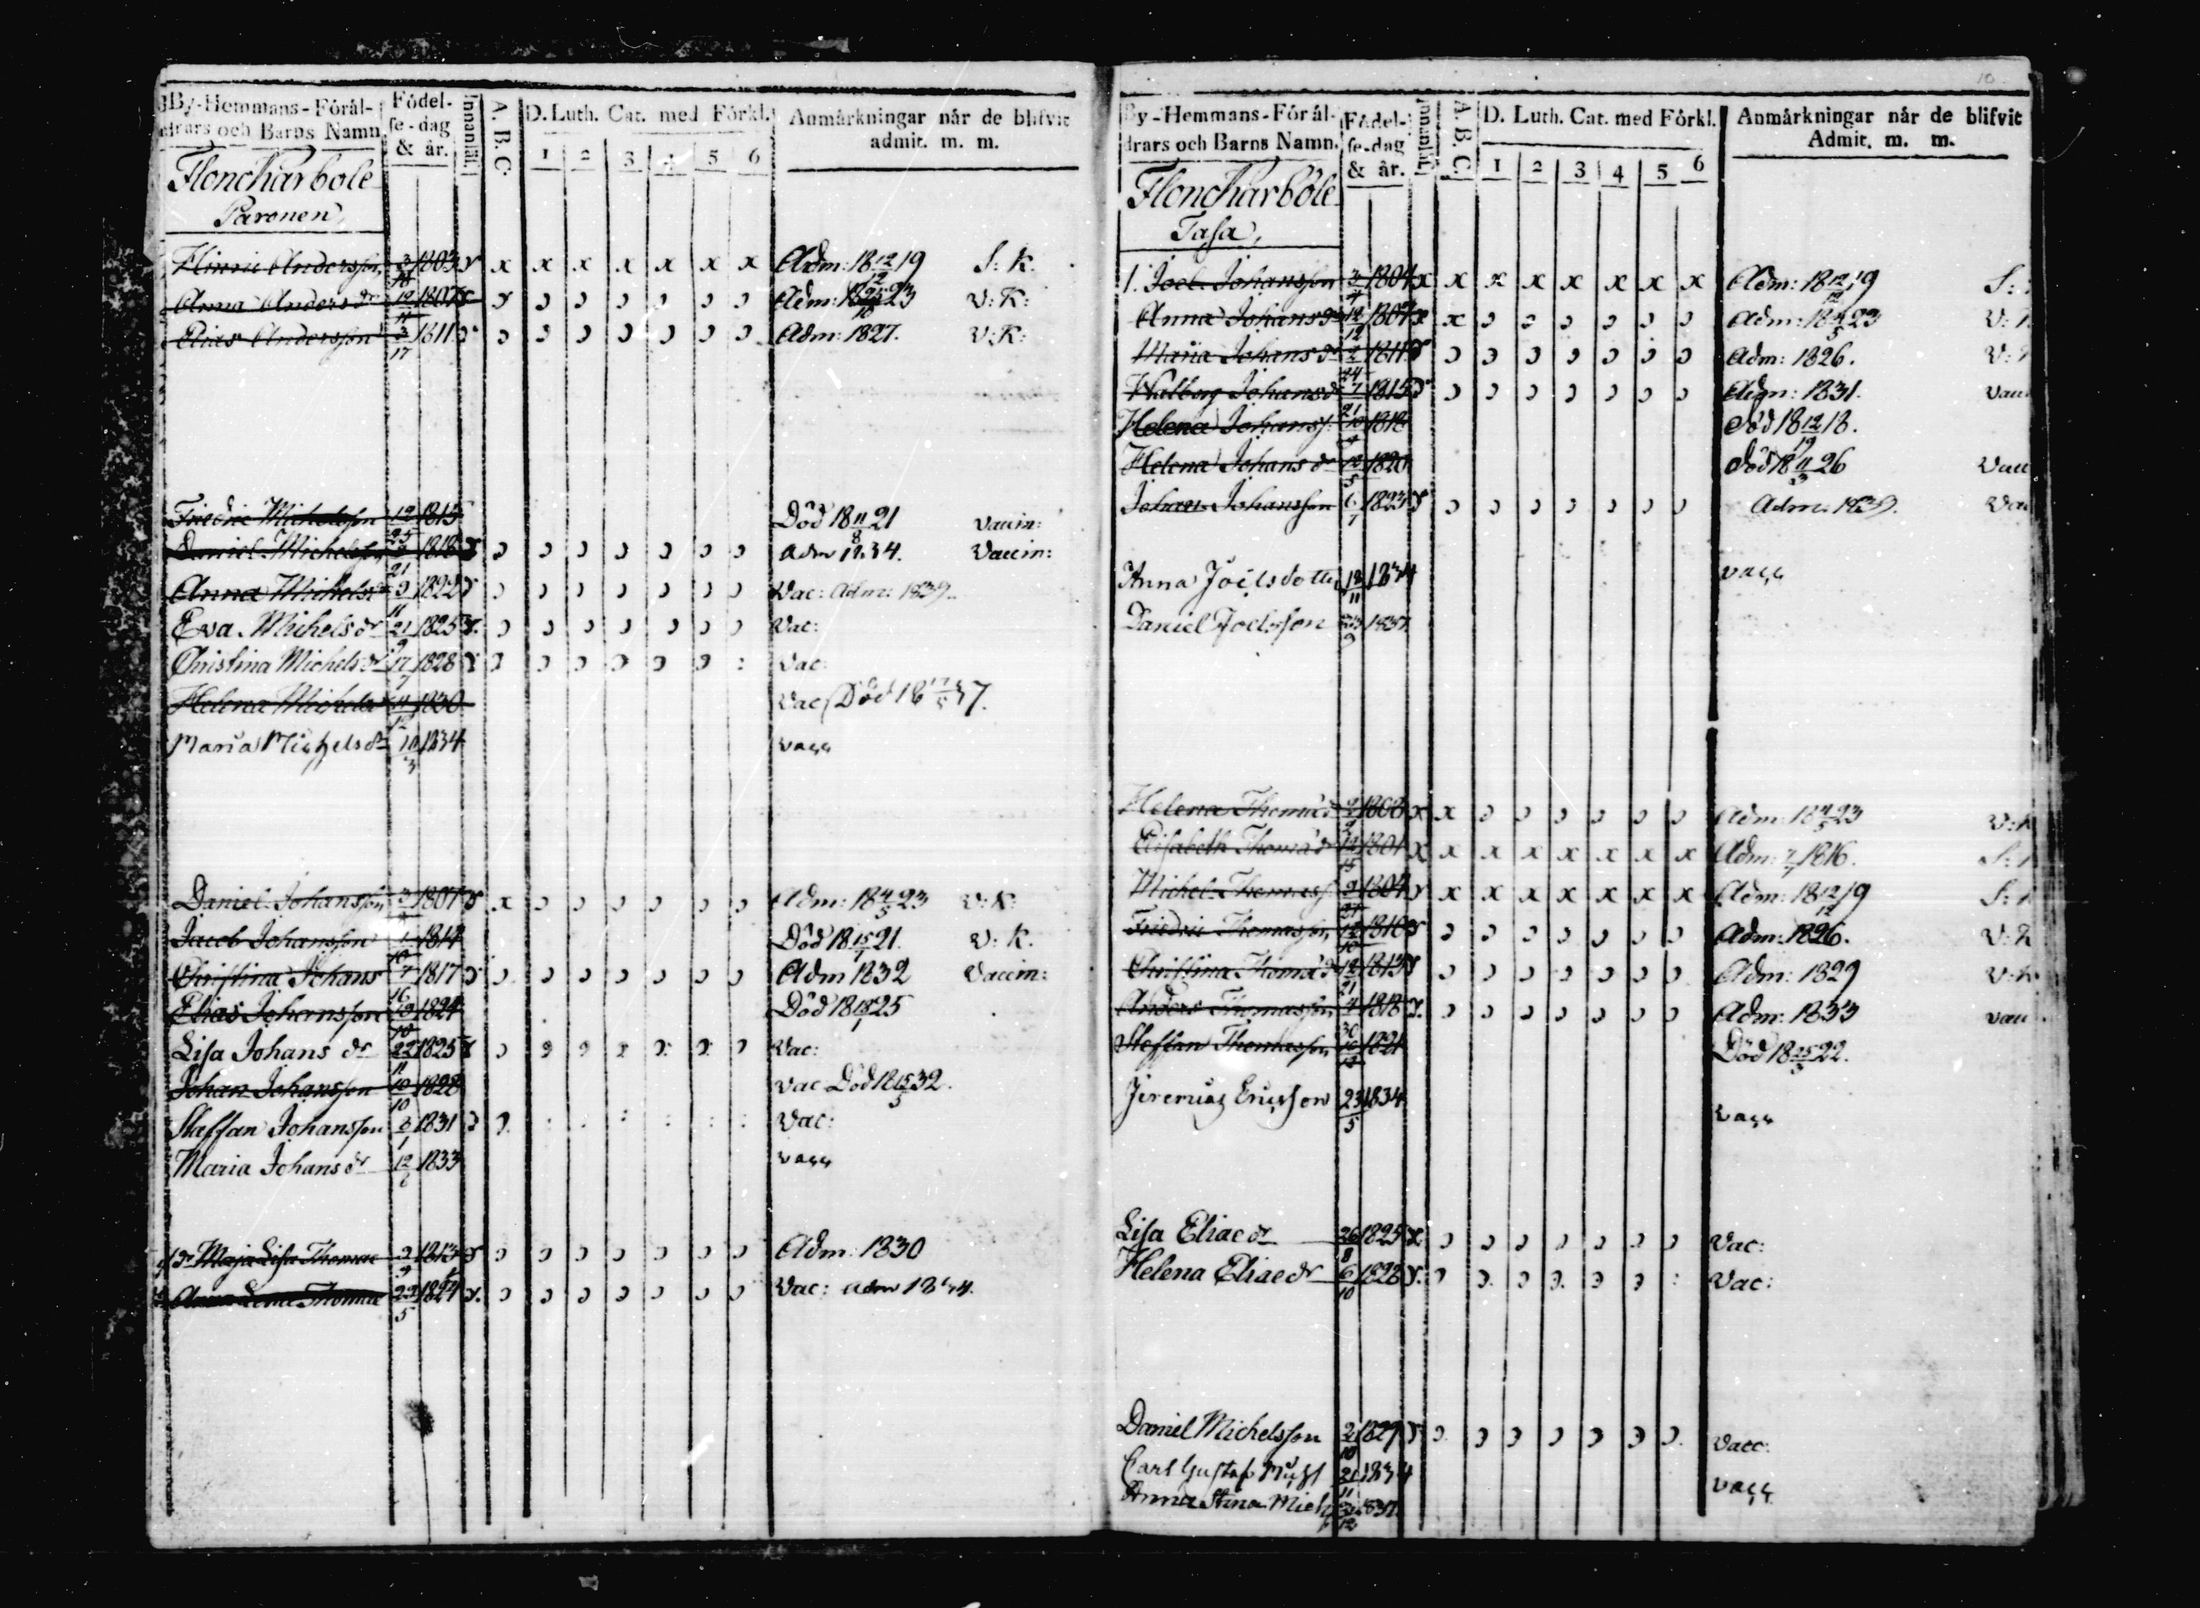 By-Hemmans-Förål-
drars och Barns Namn.
Födel-
se-dag
& år.
Innanläs.
A. B. C.
D. Luth. Cat. med Förkl.
1 2 3 4 5 6
Anmärkningar når de blifvit
admit. m. m.
Honcharböle
Paronen,
Hinric Andersson 3/18 1803 x x x x x x x x Adm: 18 12/12 19 S: K.
Anna Anders dr 1807 Adm: 23 V: K:
Elias Andersson 3/17 1811 Adm: 1827. V: K:
Fredric Michelsson 12/25 1815 Död 18 11/8 21 Vaccin:
Daniel Michelsson 1818 Adm 1834. Vaccin:
Anna Michelsdr 1822 Vac: Adm: 1839.
Eva Michels dr 21/9 1825 Vac:
Christina Michels dr 17/7 1828 Vac:
Helena Michelsdr 11/12 1830 Vac Död 18 37.
Maria Michelsdr 10/3 1834 vacc
Daniel Johansson 1807 x Adm: 18 4/5 23 V: K:
Jacob Johansson 1/10 1814 Död 18 15/1 21. V: K.
Christina Johans 7/16 1817 Adm 1832 Vaccin:
Elias Johansson 1824 Död 18 18/1 25
Lisa Johans dr 22/11 1825 Vac:
Johan Johansson 10/10 1828 Vac Död 18 15/5 32.
Staffan Johansson 3/1 1831 Vac:
Maria Johans dr 12/6 1833 vacc
Maja Lisa Thomae 1813 Adm: 1830
Anna Lena Thomae 22/5 1824 Vac: adm 1844.
10
By-Hemmans-Förål-
drars och Barns Namn.
Födel-
se-dag
& år.
Innanläs.
A. B. C.
D. Luth. Cat. med Förkl.
1 2 3 4 5 6
Anmärkningar når de blifvit
Admit. m. m.
Honcharböle
Tasa,
1. Joel Johansson 3/4 1804 x x x x x x x x Adm: 18 12/12 19 S:
Anna Johansdr 12/12 1807 x x Adm: 18 4/5 23 V:
Maria Johans dr 1811 Adm: 1826. V:
Walborg Johansdr 7/21 1815 Adm: 1831. Vacc
Helena Johans 1818 Död 18 12/19 18.
Helena Johans dr 1820 Död 18 11/3 26 Vacc
Johan Johansson 6/7 1823 Adm: 1839. Vac
Anna Joelsdotter 12/11 1834 vacc
Daniel Joelsson 1837
Helena Thomaedr 1808 x x Adm: 18 4/5 23 V: K
Elisabeth Thomaedr 12/15 1801 x x x x x x x x Adm: 1816. S:
Michel Thomass 9/21 1804 x x x x x x x Adm: 18 12/12 19 S:
Friedric Thomasson 12/10 1810 Adm: 1826. V: K
Christina Thomaedr 12/21 1813 Adm: 1829 V: K
Anders Thomasson 4/30 1818 Adm: 1833 vac
Staffan Thomasson 1821 Död 18 25/3 22.
Jeremias Ericsson 23/5 1834 vacc
Lisa Eliae dr 26/8 1825 x Vac:
Helena Eliae dr 6/10 1828 Vac:
Daniel Michelsson 2/10 1829 Vacc:
Carl Gustaf Mich 21/11 1834 vacc
Anna Stina Mich 1837.